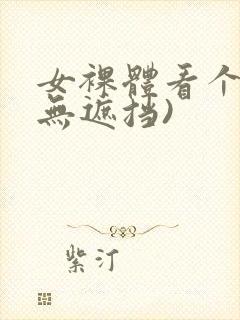 女裸體看个
無遮挡)
紫汀